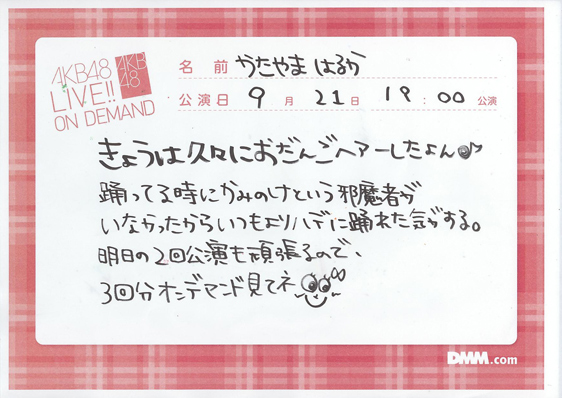 AKB48
LIVE!!
ON DEMAND
AKB
48
名 前 かたやま はるか
公演日 9 月 21 日 19 : 00 公演
きょうは久々におだんごヘアーしたよん♪
踊ってる時にかみのけという邪魔者が
いなかったからいつもよりハデに踊れた気がする。
明日の2回公演も頑張るので、
3回分オンデマンド見てネ
DMM.com